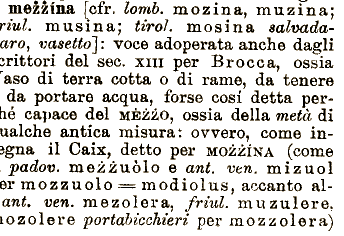 meżżína [cfr. lomb. mozina, muzina;
riul. musina; tirol. mosina salvada-
aro, vasetto]: voce adoperata anche dagli
crittori del sec. XIII per Brocca, ossia
Vaso di terra cotta o di rame, da tenere
da portare acqua, forse così detta per-
hé capace del MÈŻŻO, ossia della metà di
ualche antica misura: ovvero, come in-
egna il Caix, detto per MOŻŻÍNA (come
padov. meżżuòlo e ant. ven. mizuol
er mozzuolo = modiolus, accanto al-
ant. ven. mezolera, friul. muzulere,
nozolere portabicchieri per mozzolera)